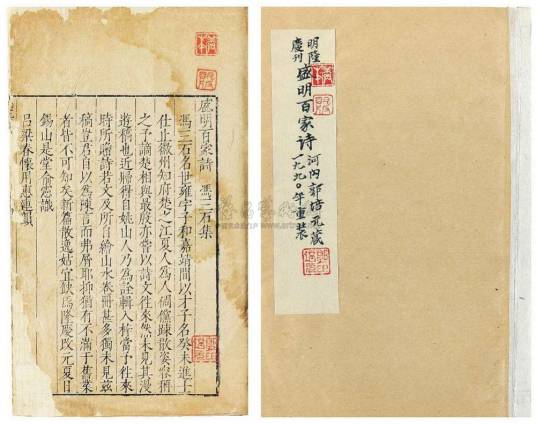 盛明百家詩 馮三石集
馮三石名世雍字子和嘉靖間以才子名癸未進士
仕止徽州知府楚之江夏人為人倜儻疎散姿容
之予謫楚相與最 亦嘗以詩文往來然未見其漫
遊稿也近歸得自姚山人乃為詮輯入梓當予往來
時所贈詩若文及所自繪山水卷冊甚多獨未見茲
稿豈君自以為陳言而弗屑耶抑猶有不滿于舊業
者皆不可知矣新篇散逸姑宜缺焉隆慶改元夏日
錫山是堂俞憲識
呂梁春懷用惠連韻
明隆
慶刊
盛明百家诗
河内郭培元藏
一九九〇年重装